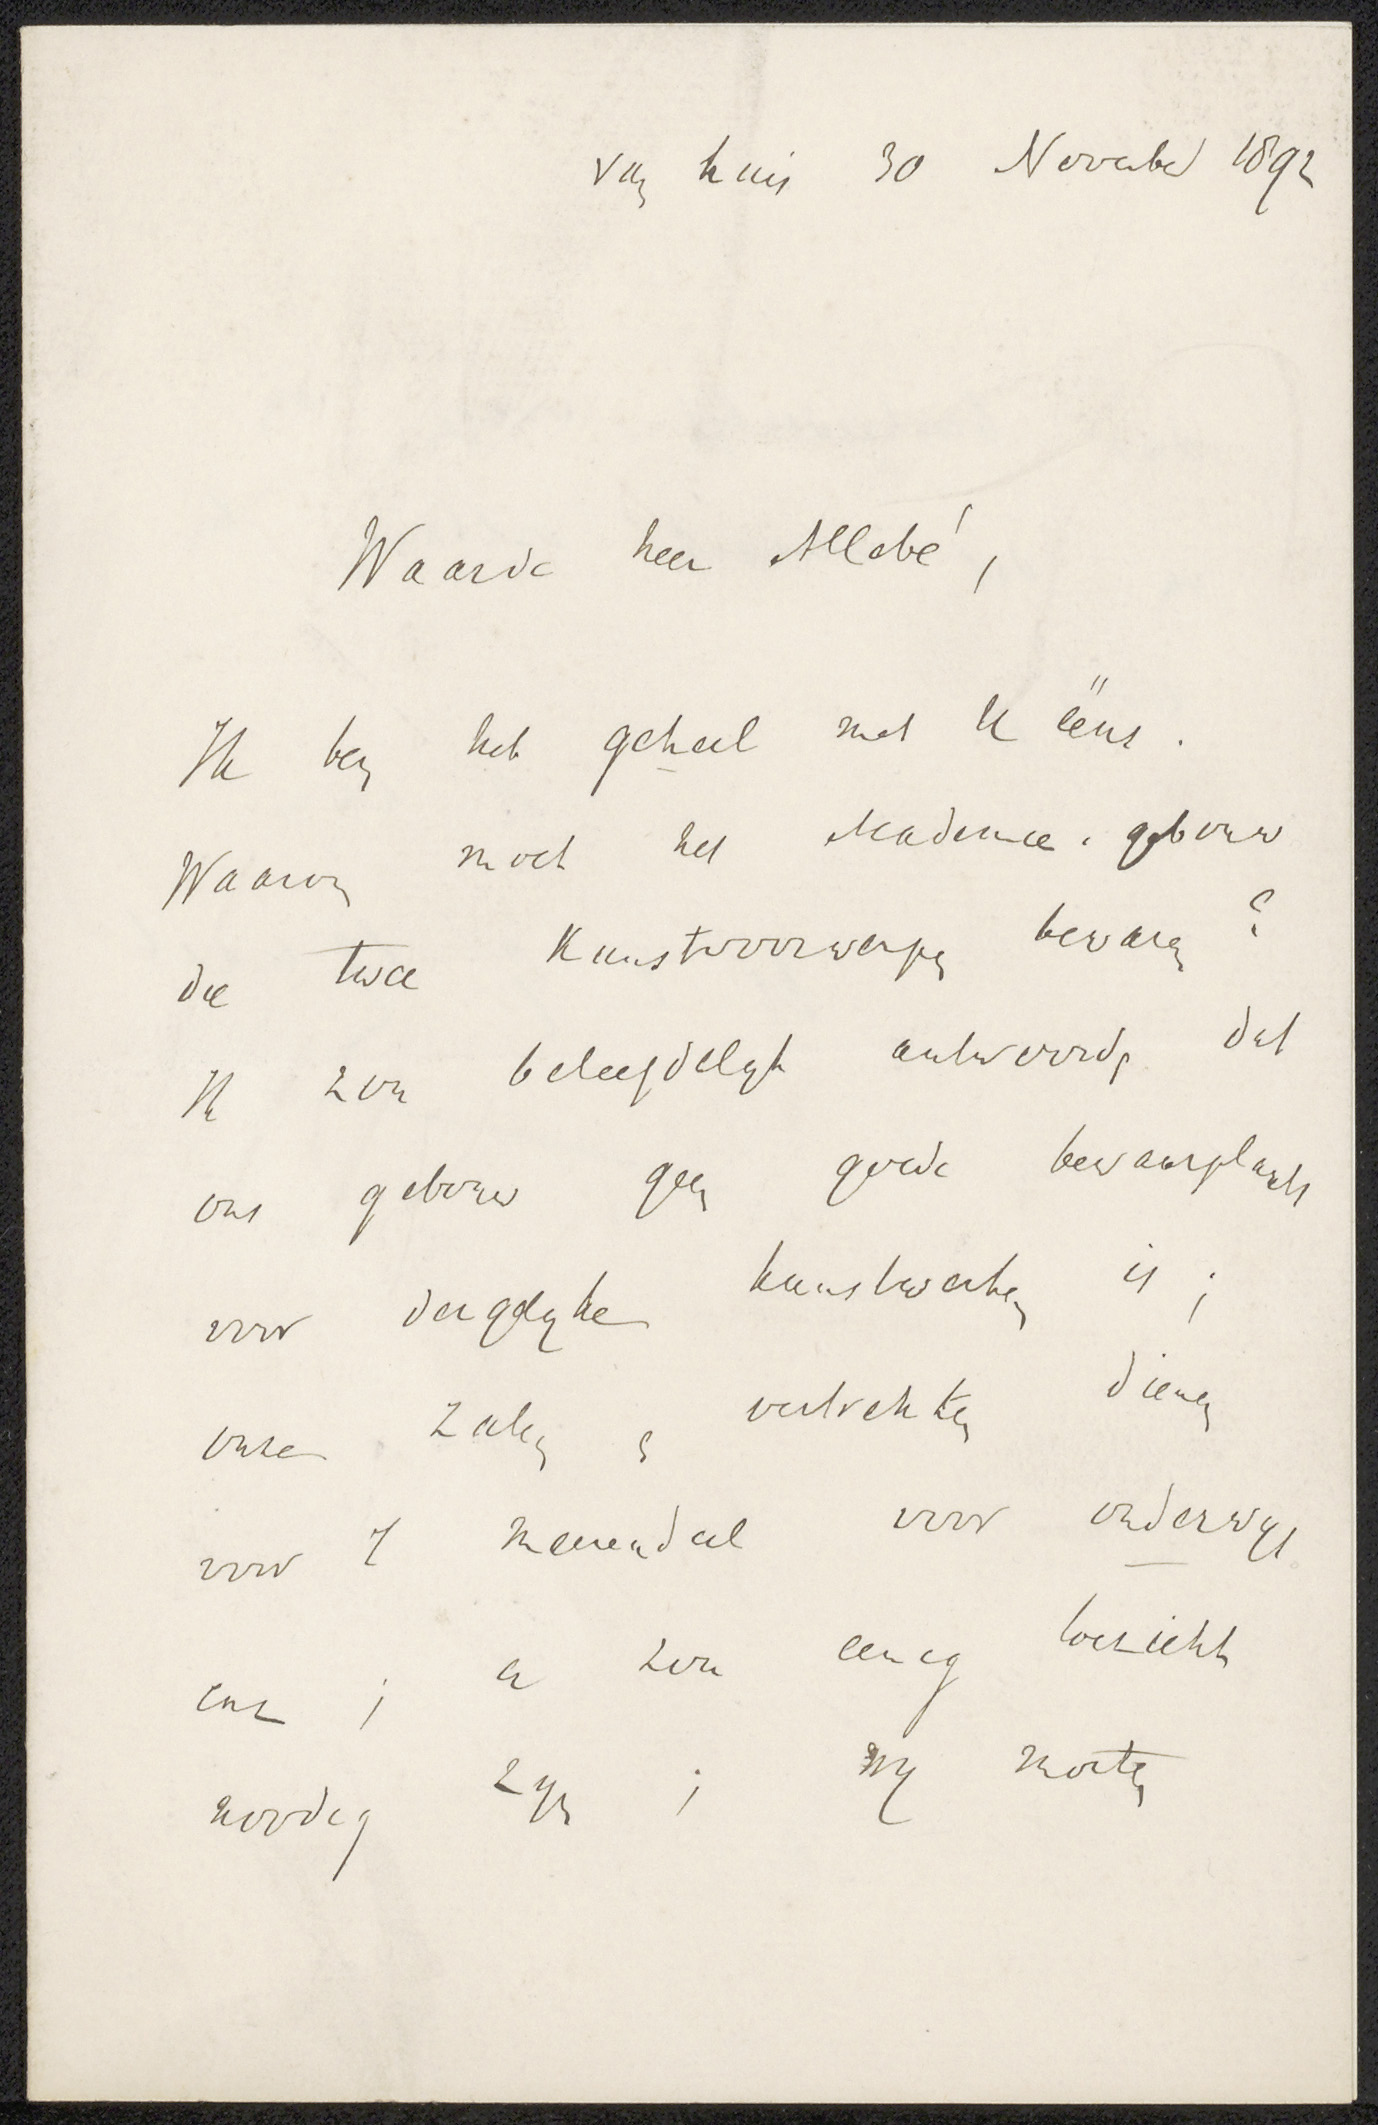 van huis 30 November 1892
Waarde heer Allebé,
Ik ben het geheel met U ëens.
Waarom moet het Academie-gebouw
die twee Kunstvoorwerpen bewaren?
Ik zou beleefdelyk antwoorden dat
ons gebouw geen goede bewaarplaats
voor dergelyke kunstwerken is;
onze zalen & vertrekken dienen
voor 't meerendeel voor onderwys
enz; er zou eenig toezicht
noodig zyn; wy moeten